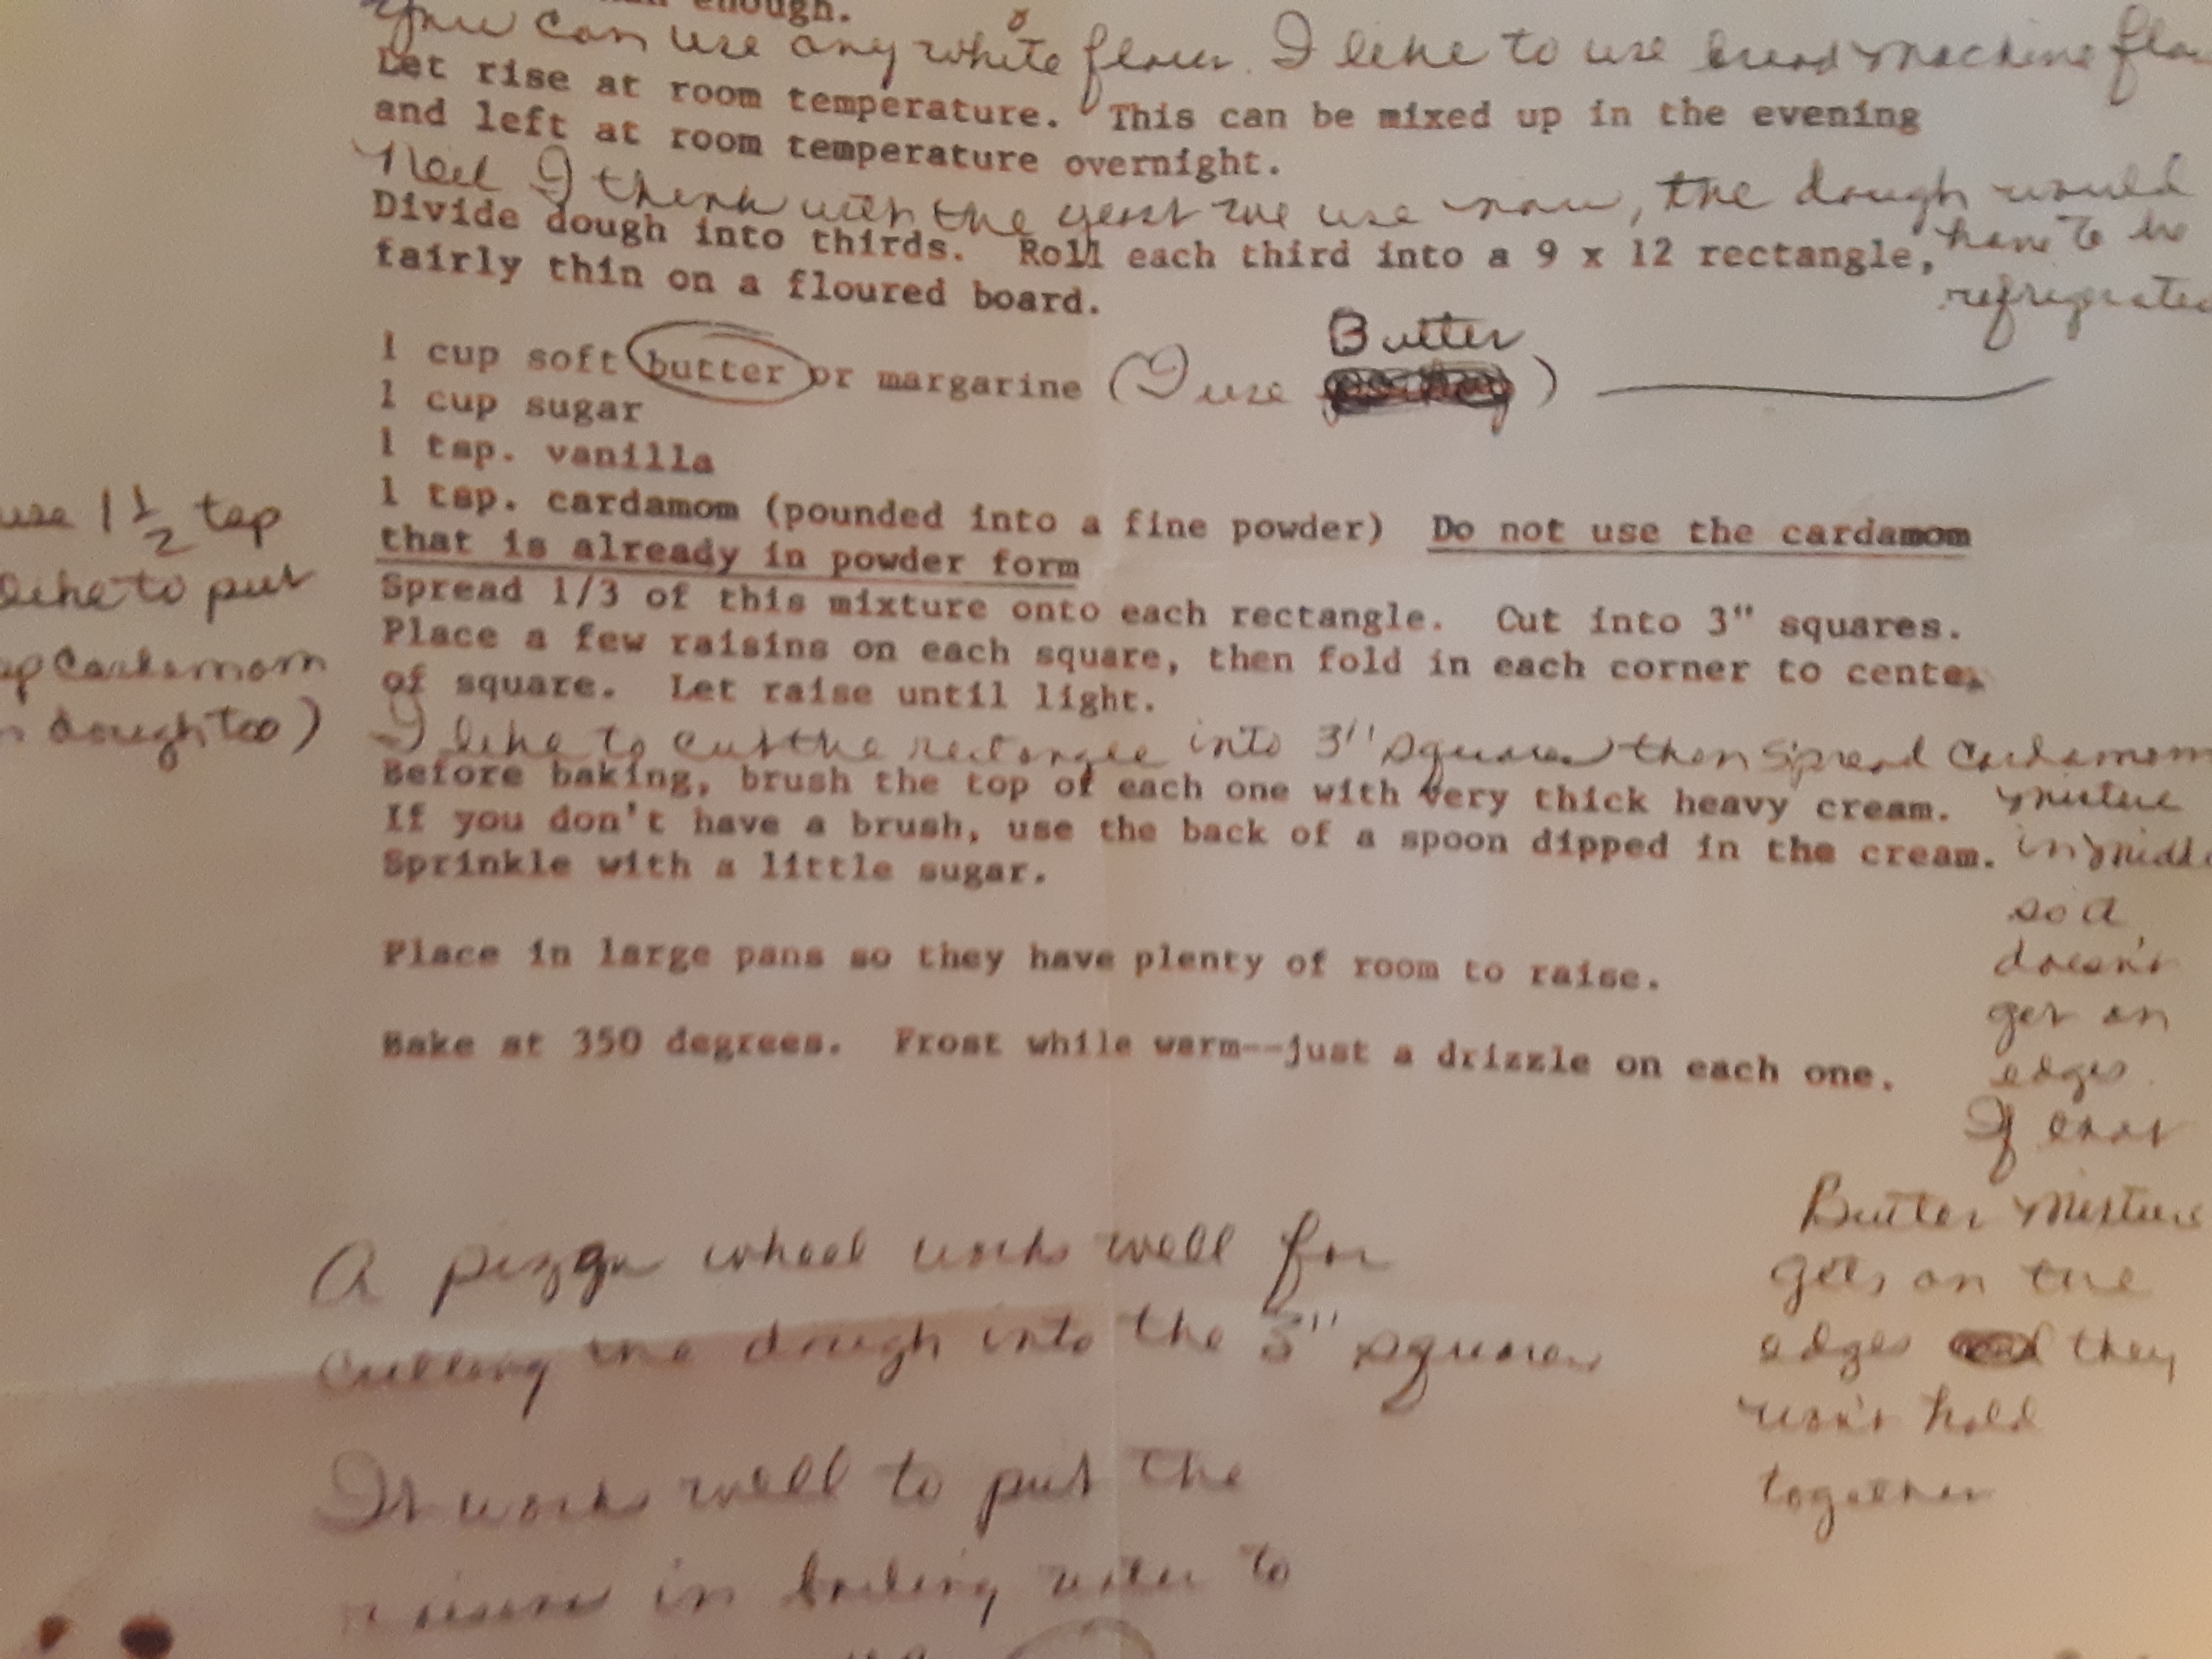 enough.
You can use any white flour. I like to use bread machine
Let rise at room temperature. This can be mixed up in the evening
and left at room temperature overnight.
I think with the yeast we use now, the dough would
have to be
refrigerated
Divide dough into thirds. Roll each third into a 9 x 12 rectangle,
fairly thin on a floured board.
Butter
1 cup soft butter or margarine (I use )
1 cup sugar
1 tsp. vanilla
1 tsp. cardamom (pounded into a fine powder) Do not use the cardamom
that is already in powder form
use 1 1/2 tsp
like to put
cardamom
dough too)
Spread 1/3 of this mixture onto each rectangle. Cut into 3" squares.
Place a few raisins on each square, then fold in each corner to center
of square. Let raise until light.
I like to cut the rectangle into 3" squares then spread cardamom
mixture
in middle
so it
doesn't
get on
edges.
If
Butter mixture
gets on the
edges they
won't hold
together
Before baking, brush the top of each one with very thick heavy cream.
If you don't have a brush, use the back of a spoon dipped in the cream.
Sprinkle with a little sugar.
Place in large pans so they have plenty of room to raise.
Bake at 350 degrees. Frost while warm--just a drizzle on each one.
A pizza wheel works well for
cutting the dough into the 3" squares
It works well to put the
raisins in boiling water to